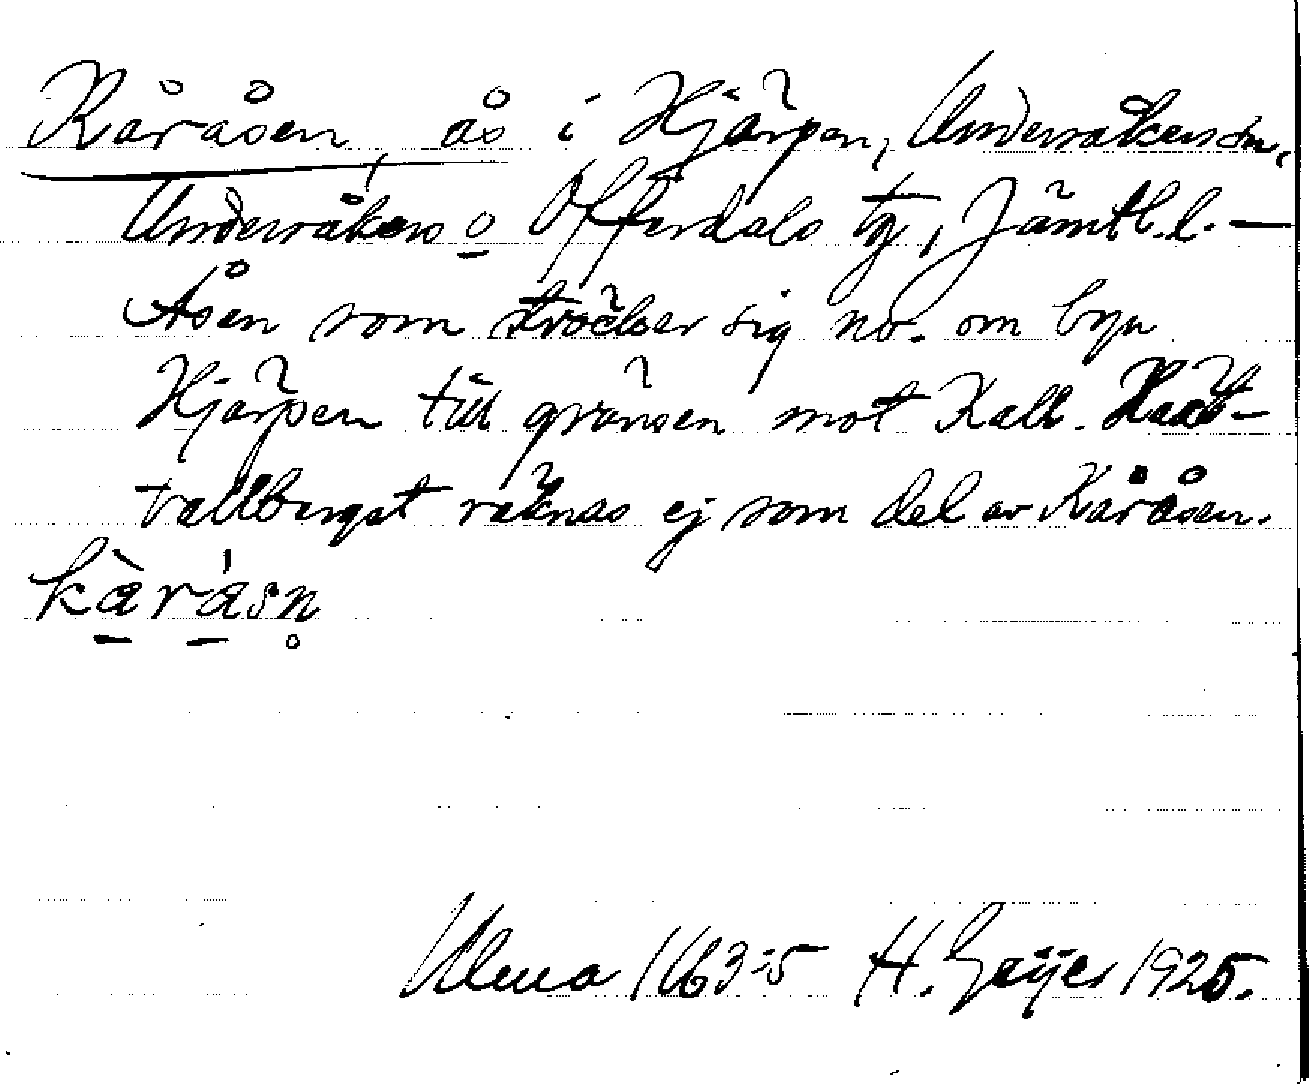 Kåråsen, ås i Hjärpen, Undersåkers sn,
Undersåkers o Offerdals tg, Jämtl.l. —
Åsen som sträcker sig nö. om byn
Hjärpen till gränsen mot Kall.
vallberget räknas ej som del av Kåråsen.
kàrásn̥
Ulma 163:5 H. Geijer 1925.